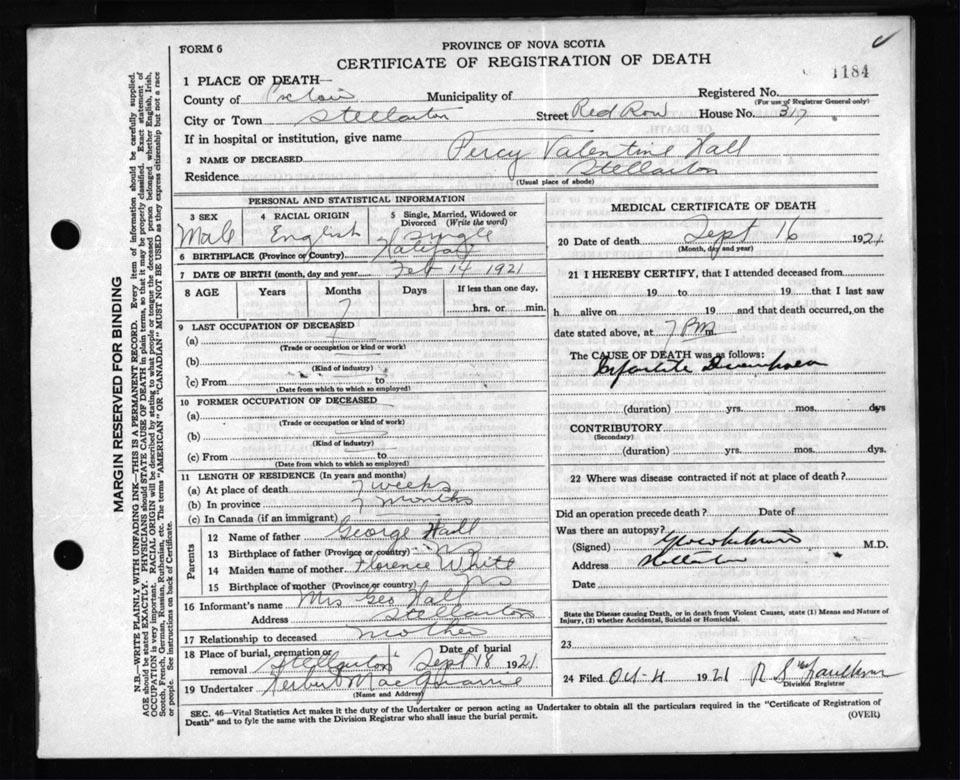 FORM 6
PROVINCE OF NOVA SCOTIA
CERTIFICATE OF REGISTRATION OF DEATH
1184
1 PLACE OF DEATH—
County of Pictou Municipality of Registered No.
(For use of Registrar General only)
City or Town Stellarton Street Red Row House No. 317
If in hospital or institution, give name
2 NAME OF DECEASED Percy Valentine Hall
Residence Stellarton
(Usual place of abode)
PERSONAL AND STATISTICAL INFORMATION
3 SEX 4 RACIAL ORIGIN 5 Single, Married, Widowed or Divorced (Write the word)
Male English Single
6 BIRTHPLACE (Province or Country) Halifax
7 DATE OF BIRTH (month, day and year) Feb 14 1921
8 AGE Years Months Days If less than one day,
7 hrs. or min.
9 LAST OCCUPATION OF DECEASED
(a)
(Trade or occupation or kind of work)
(b)
(Kind of industry)
(c) From to
(Date from which to which so employed)
10 FORMER OCCUPATION OF DECEASED
(a)
(Trade or occupation or kind of work)
(b)
(Kind of industry)
(c) From to
(Date from which to which so employed)
11 LENGTH OF RESIDENCE (In years and months)
(a) At place of death 7 weeks
(b) In province 7 months
(c) In Canada (if an immigrant)
Parents
12 Name of father George Hall
13 Birthplace of father (Province or country) NS
14 Maiden name of mother Florence White
15 Birthplace of mother (Province or country) NS
16 Informant's name Mrs Geo Hall
Address Stellarton
17 Relationship to deceased Mother
18 Place of burial, cremation or removal Stellarton Date of burial Sept 18 1921
19 Undertaker Herbert MacQuarrie
(Name and Address)
MEDICAL CERTIFICATE OF DEATH
20 Date of death Sept 16 1921
(Month, day and year)
21 I HEREBY CERTIFY, that I attended deceased from
19 to 19 that I last saw
h alive on 19 and that death occurred, on the
date stated above, at 7 PM m.
The CAUSE OF DEATH was as follows:
Infantile Diarrhoea
(duration) yrs. mos. dys
CONTRIBUTORY
(Secondary)
(duration) yrs. mos. dys.
22 Where was disease contracted if not at place of death?
Did an operation precede death? Date of
Was there an autopsy?
(Signed) M.D.
Address Stellarton
Date
State the Disease causing Death, or in death from Violent Causes, state (1) Means and Nature of
Injury, (2) whether Accidental, Suicidal or Homicidal.
23
24 Filed Oct 4 1921 R S Faulkner
Division Registrar
SEC. 46—Vital Statistics Act makes it the duty of the Undertaker or person acting as Undertaker to obtain all the particulars required in the "Certificate of Registration of
Death" and to fyle the same with the Division Registrar who shall issue the burial permit.
(OVER)
MARGIN RESERVED FOR BINDING
N.B.—WRITE PLAINLY WITH UNFADING INK—THIS IS A PERMANENT RECORD. Every item of information should be carefully supplied.
AGE should be stated EXACTLY. PHYSICIANS should STATE CAUSE OF DEATH in plain terms, so that it may be properly classified. Exact statement of
OCCUPATION is very important. RACIAL ORIGIN will be described by stating to what people or tongue the deceased person belonged whether English, Irish,
Scotch, French, German, Russian, Ruthenian, etc. The terms "AMERICAN" OR "CANADIAN" MUST NOT BE USED as they express citizenship but not a race
or people. See instructions on back of Certificate.